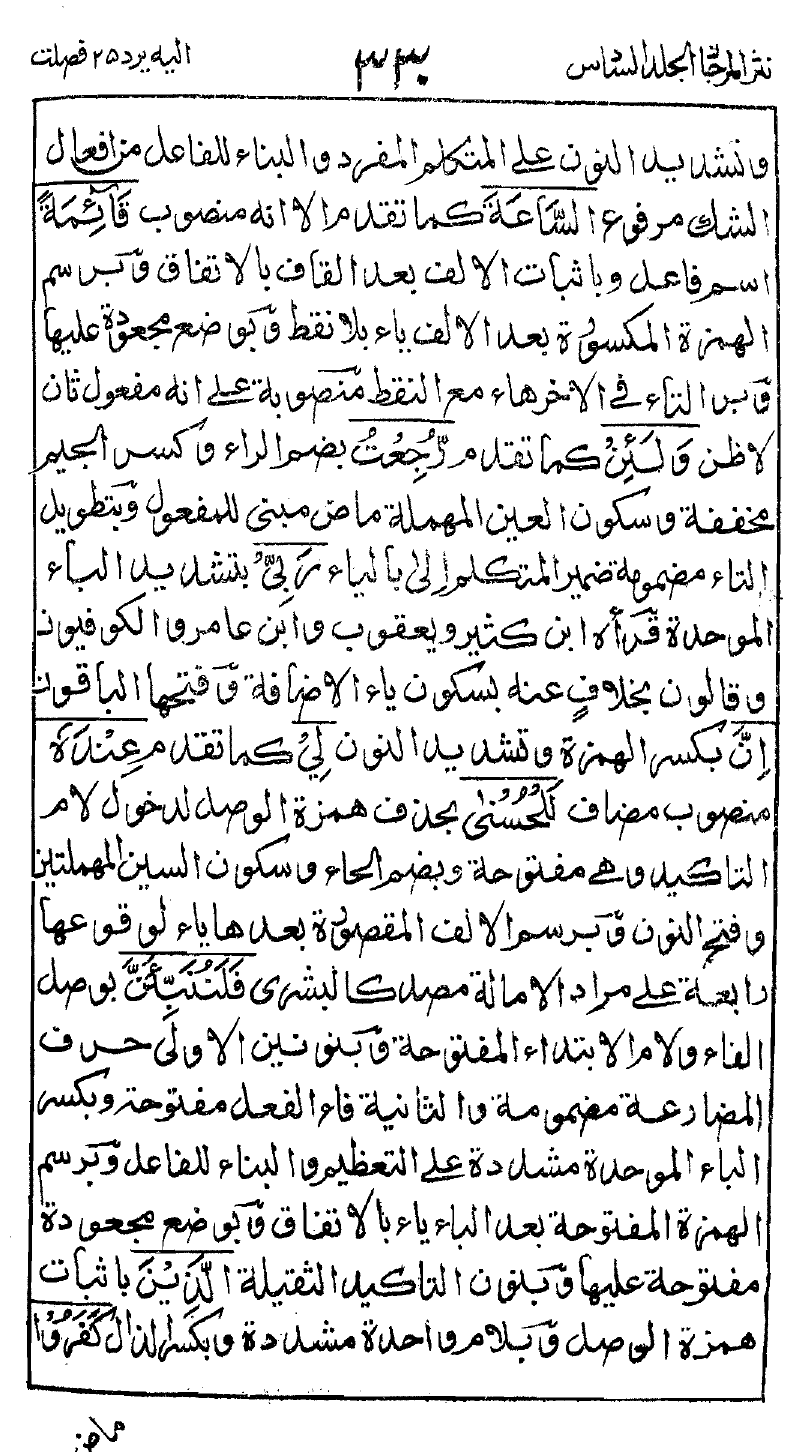 نثر المرجان المجلد السادس ٣٣٠ اليه يرد ٢٥ فصلت
وتشديد النون على المتكلم المفرد والبناء للفاعل من افعال
الشك مرفوع السَّاعَةَ كما تقدم الا انه منصوب قَآئِمَةً
اسم فاعل وباثبات الالف بعد القاف بالاتفاق وَبرسم
الهمزة المكسورة بعد الالف ياء بلا نقط وَبوضع مجعودة عليها
وَبرسم التاء في الاخر هاء مع النقط منصوبة على انه مفعول ثان
لاظن وَلَئِنْ كما تقدم رُّجِعْتُ بضم الراء وكسر الجيم
مخففة وسكون العين المهملة ماض مبنى للمفعول وَبتطويل
التاء مضمومة ضمير المتكلم اِلىٰ بالياء رَبِّىْ بتشديد الباء
الموحدة قرأه ابن كثير ويعقوب وابن عامر والكوفيون
وقالون بخلافٍ عنه بسكون ياء الاضافة وَفتحها الباقون
اِنَّ بكسر الهمزة وتشديد النون لِىْ كما تقدم عِنْدَهٗ
منصوب مضاف لَلْحُسْنٰى بحذف همزة الوصل لدخول لام
التاكيد وهى مفتوحة وبضم الحاء وسكون السين المهملتين
وفتح النون وَبرسم الالف المقصورة بعدها ياء لوقوعها
رابعة على مراد الامالة مصدر كالبشرى فَلَنُنَبِّئَنَّ بوصل
الفاء ولام الابتداء المفتوحة وَبنونين الاولى حرف
المضارعة مضمومة والثانية فاء الفعل مفتوحة وبكسر
الباء الموحدة مشددة على التعظيم والبناء للفاعل وَبرسم
الهمزة المفتوحة بعد الباء ياء بالاتفاق وَبوضع مجعودة
مفتوحة عليها وَبنون التاكيد الثقيلة الَّذِيْنَ باثبات
همزة الوصل وَبلام واحدة مشددة وبكسر الذال كَفَرُوْا
ماض